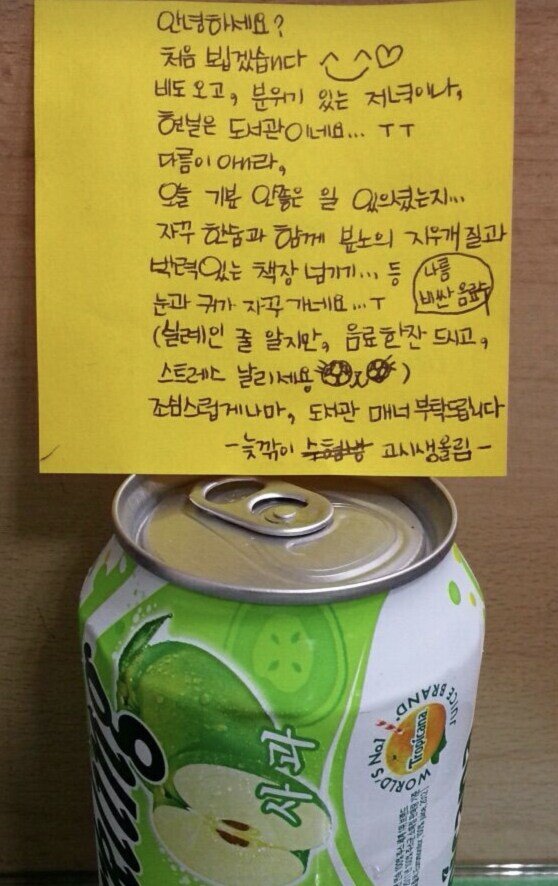 안녕하세요?
처음 뵙겠습니다 ^‿^♡
비도 오고, 분위기 있는 저녁이나,
현실은 도서관이네요... ㅜㅜ
다름이 아니라,
오늘 기분 안좋은 일 있으셨는지...
자꾸 한숨과 함께 분노의 지우개 질과
박력있는 책장 넘기기... 등
눈과 귀가 자꾸 가네요...ㅜ
나름
비싼 음료수
(실례인 줄 알지만, 음료한잔 드시고,
스트레스 날리세용)
조심스럽게나마, 도서관 매너 부탁드립니다
-늦깎이 고시생올림-
사과
WORLD'S No1 JUICE BRAND.
Tropicana